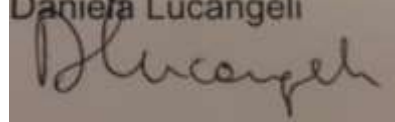 Daniela Lucangeli
DLucangeli